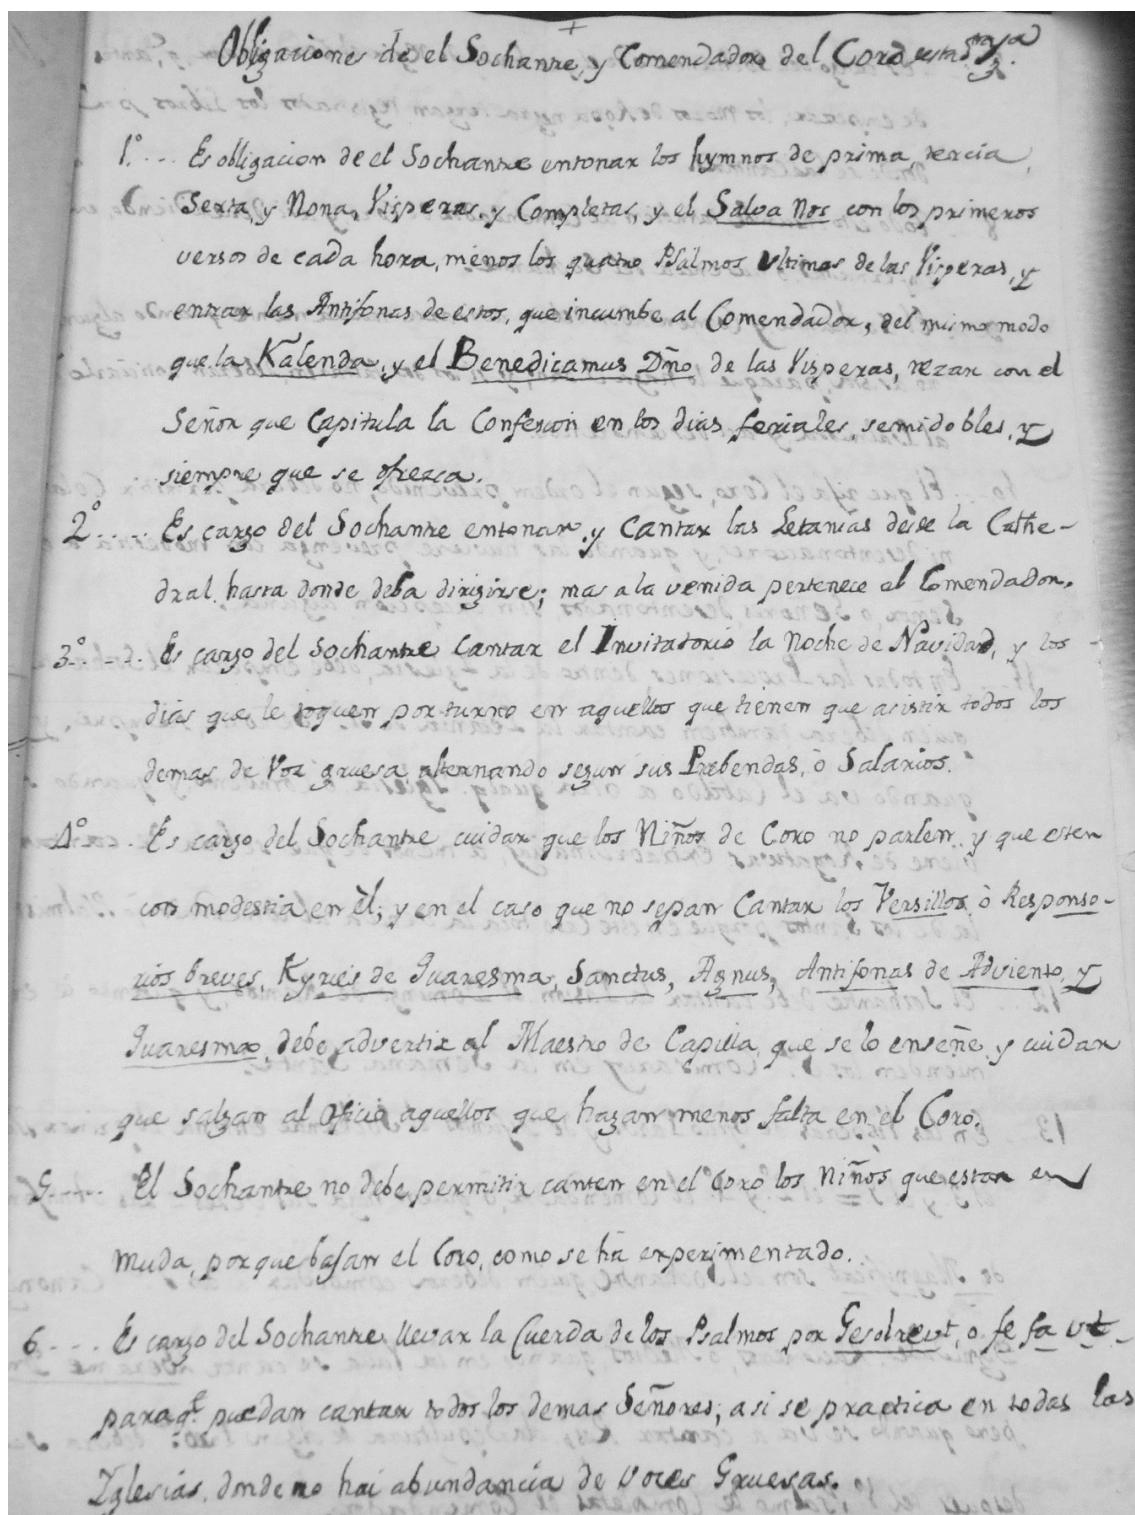 +
Obligaciones de el Sochantre, y Comendador del Coro
1º.... Es obligacion de el Sochantre entonar los hymnos de prima, tercia,
Sexta, y Nona, Visperas, y Completas, y el Salva Nos con los primeros
versos de cada hora, menos los quatro Psalmos ultimos de las Visperas, y
entrar las Antifonas de estos, que incumbe al Comendador, del mismo modo
que la Kalenda, y el Benedicamus Dño de las Visperas, rezar con el
Señor que Capitula la Confesion en los dias feriales, semidobles, y
siempre que se ofrezca.
2º..... Es cargo del Sochantre entonar, y Cantar las Letanias desde la Cathe-
dral hasta donde deba dirigirse; mas a la venida pertenece al Comendador.
3º..... Es cargo del Sochantre Cantar el Invitatorio la Noche de Navidad, y los
dias que le toquen por turno en aquellos que tienen que asistir todos los
demas de Voz gruesa alternando segun sus Prebendas, ò Salarios.
4º... Es cargo del Sochantre cuidar que los Niños de Coro no parlen, y que esten
con modestia en èl; y en el caso que no sepan Cantar los Versillos, ò Responso-
rios breves, Kyries de Quaresma, Sanctus, Agnus, Antifonas de Adviento, y
Quaresma, debe advertir al Maestro de Capilla, que se lo enseñe, y cuidar
que salgan al Oficio aquellos que hagan menos falta en el Coro.
5..... El Sochantre no debe permitir canten en el Coro los Niños que estan en
muda, porque bajan el Coro, como se há experimentado.
6.... Es cargo del Sochantre llevar la Cuerda de los Psalmos por Gesolreut, o fe fa ut
para q.e puedan cantar todos los demas Señores; asi se practica en todas las
Yglesias, donde no hai abundancia de voces Gruesas.